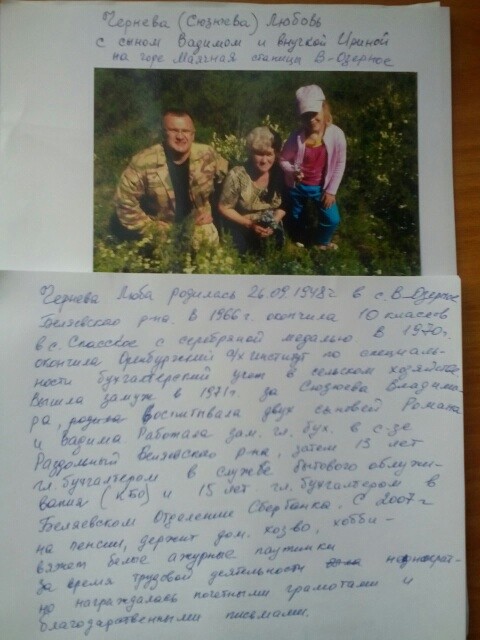 Чернева (Сюзюева) Любовь
с сыном Вадимом и внучкой Ириной
на горе Маячная станицы В-Озерное
Чернева Люба родилась 26.09.1948г в с. В-Озерное
Беляевского р-на. В 1966г. окончила 10 классов
в с. Спасское с серебряной медалью. В 1970г.
окончила Оренбургский с/х институт по специаль-
ности бухгалтерский учет в сельском хозяйстве
Вышла замуж в 1971г. за Сюзюева Владими-
ра, воспитывала двух сыновей Романа
и Вадима Работала зам. гл. бух. в с-зе
Раздольный Беляевского р-на, затем 13 лет
гл. бухгалтером в службе бытового обслужи-
вания (КБО) и 15 лет гл. бухгалтером в
Беляевском Отделение Сбербанка. С 2007г
на пенсии, держит дом. хоз-во, хобби-
вяжет белое ажурные паутинки
За время трудовой деятельности неоднократ-
но награждалась почетными грамотами и
благодарственными письмами.